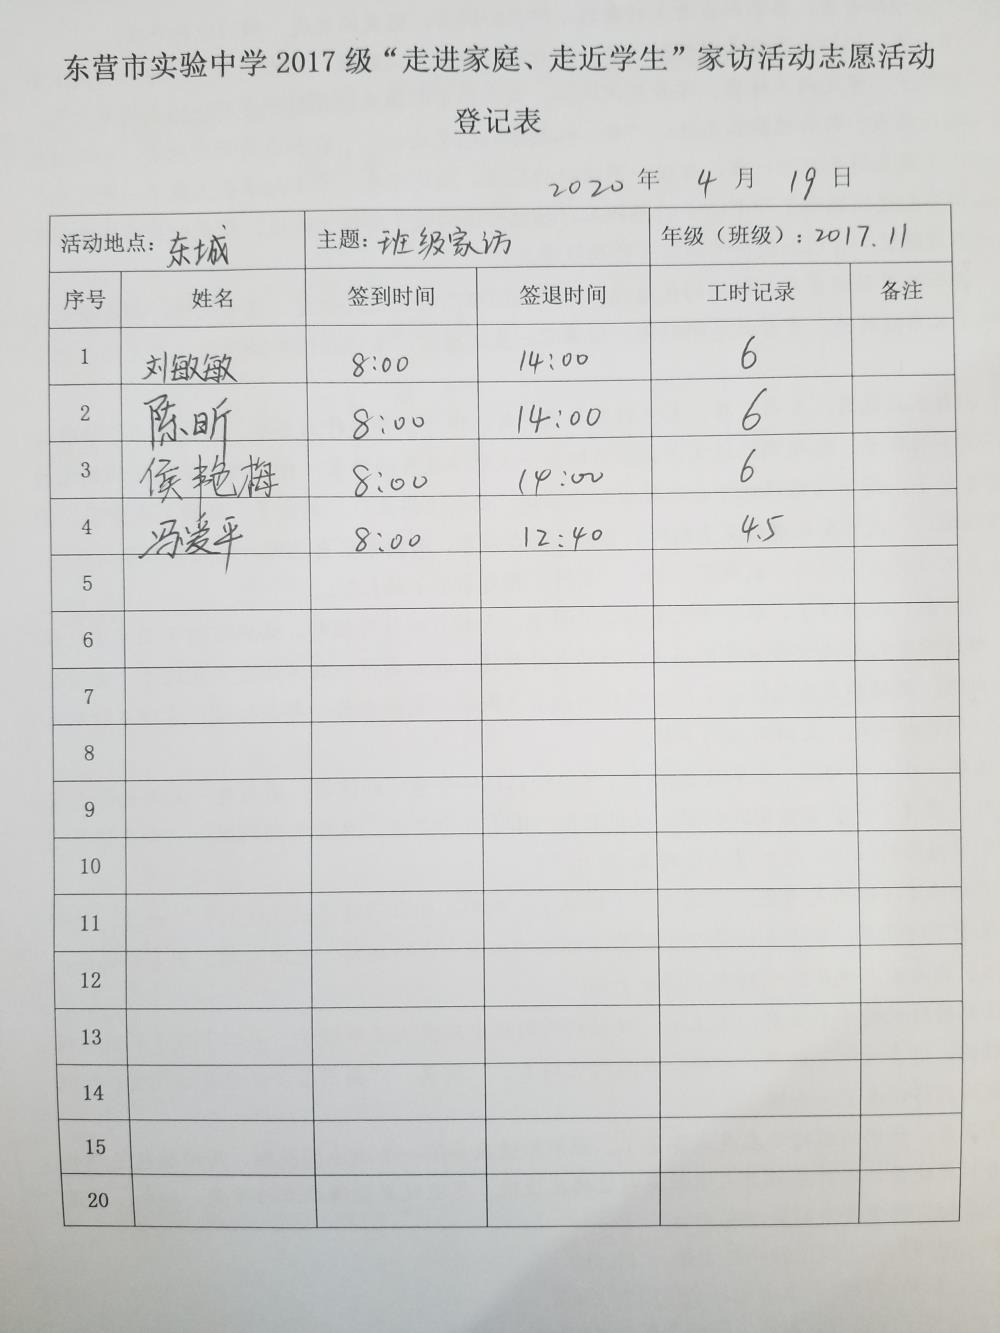 东营市实验中学 2017 级“走进家庭、走近学生”家访活动志愿活动
登记表
2020 年 4 月 19 日
活动地点: 东城 主题: 班级家访 年级（班级）: 2017.11
序号 姓名 签到时间 签退时间 工时记录 备注
1 刘敏敏 8:00 14:00 6
2 陈昕 8:00 14:00 6
3 侯艳梅 8:00 14:00 6
4 冯爱平 8:00 12:40 4.5
5
6
7
8
9
10
11
12
13
14
15
20